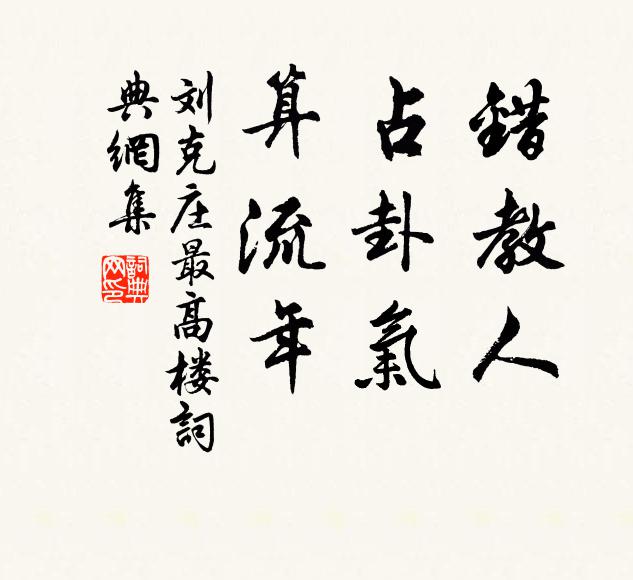 錯教人
占卦氣
算流年
刘克庄最高楼詞
典網集
詞典
网印